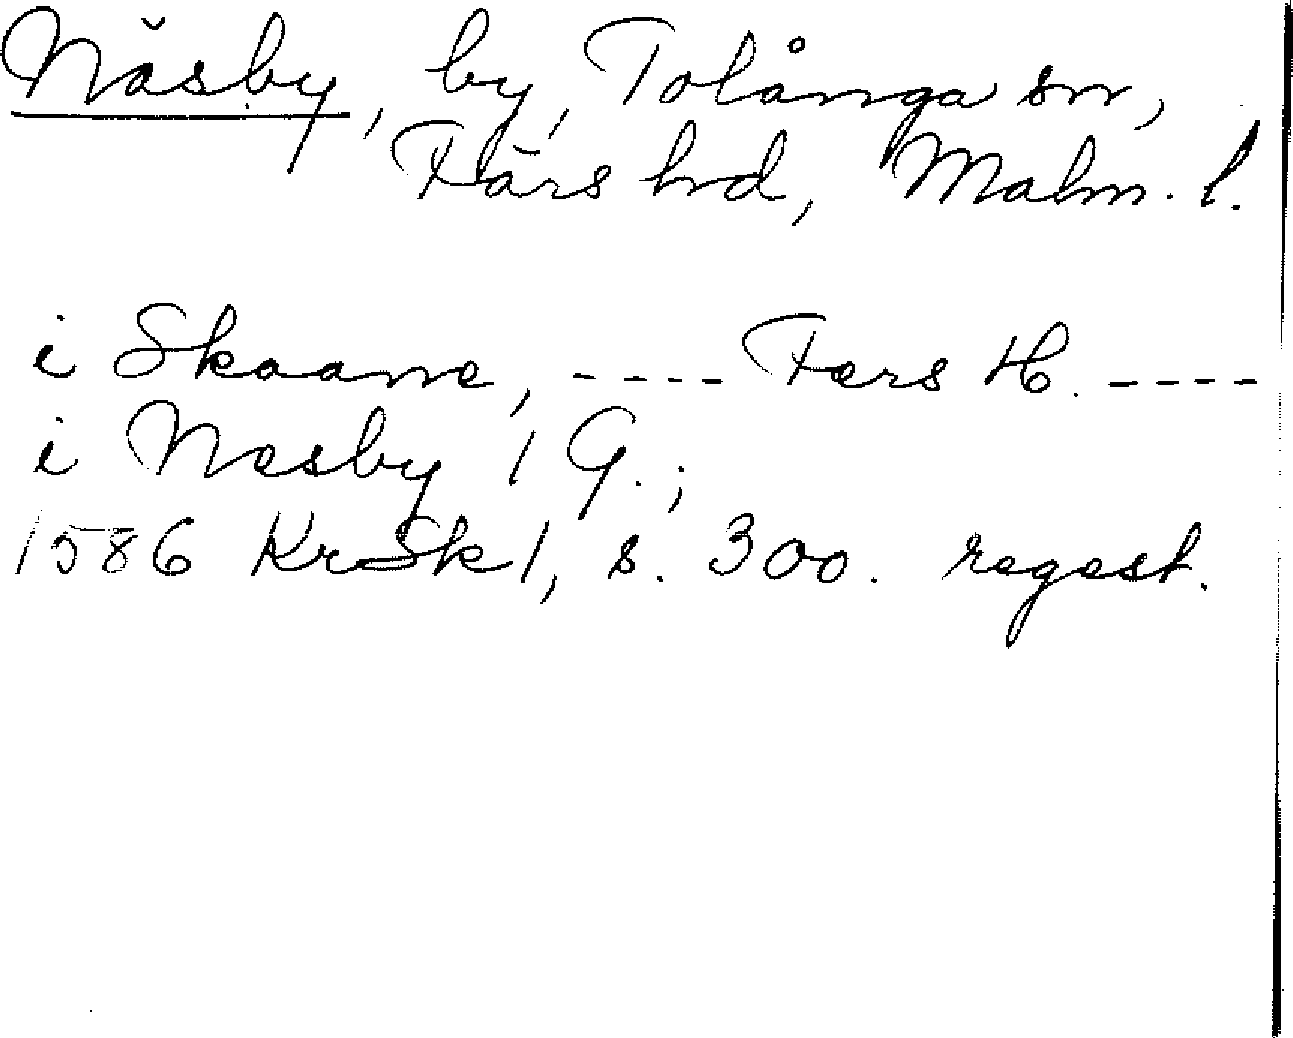 Näsby, by, Tolånga sn,
Färs hd, Malm. l.
i Skaane, ---- Fers H. ----
i Nesby 1 G.;
1586 KrSk 1, s. 300. regest.